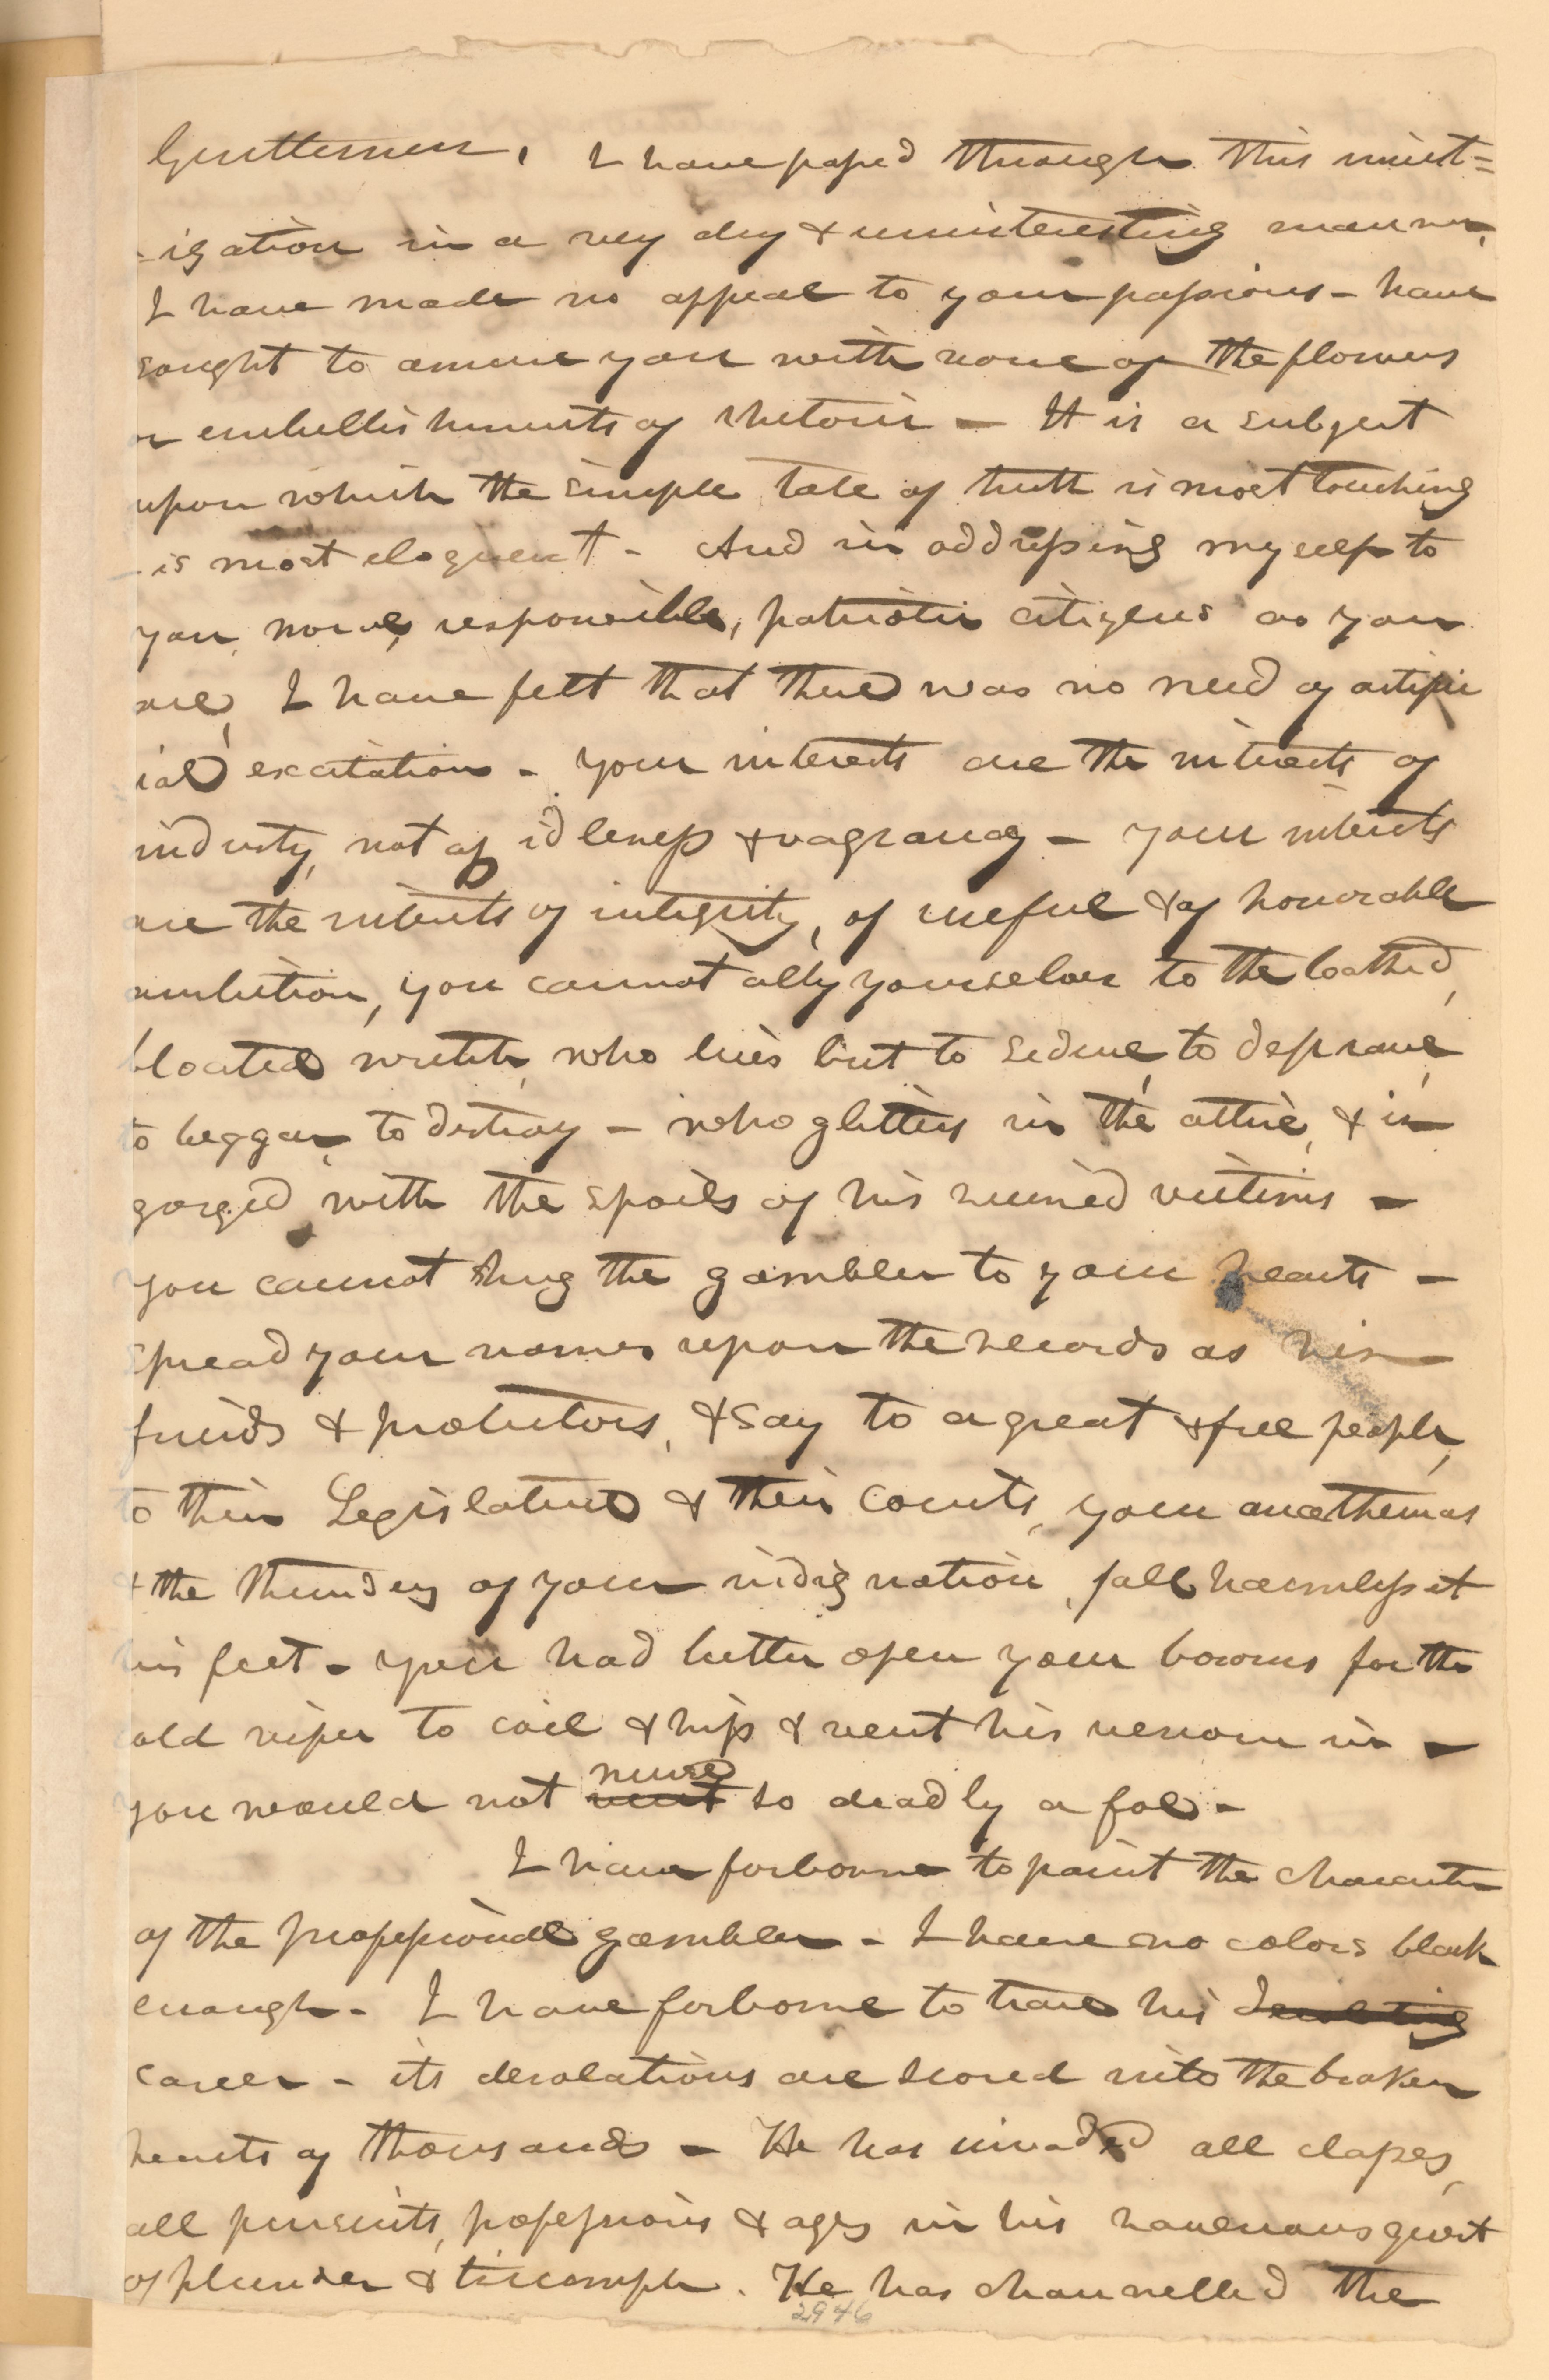 Gentlemen, I have passed through this invest=
-igation in a very dry & uninteresting manner,
I have made no appeal to your passions - have
sought to amuse you with none of the flowers
or embellishments of rhetoric - It is a subject
upon which the simple tale of truth is most touching
- is most eloquent - And in addressing myself to
you, moral, responsible, patriotic citizens as you
are, I have felt that there was no need of artific
ial excitation - your interests are the interests of
industry, not of idleness & vagrancy - your interests
are the interests of integrity, of useful & of honorable
ambition, you cannot ally yourselves to the loathed,
bloated wretch, who lives but to seduce, to deprave,
to beggar, to destroy - who glitters in the attire, & is
gorged with the spoils of his ruined victims -
you cannot hug the gambler to your hearts -
spread your names upon the records as his
friends & protectors, & say to a great & free people,
to their Legislature & their courts, your anathemas
& the thunders of your indignation, fall harmless at
his feet - you had better open your bosoms for the
cold viper to coil & hiss & vent his venom in -
you would not nurse vent so deadly a foe -
I have forborne to paint the character
of the professional gambler - I have no colors black
enough - I have forborne to trace his desolating
career - its desolations are scored into the broken
hearts of thousands - He has invaded all classes,
all pursuits, professions & ages in his ravenous quest
of plunder & triumph. He has channelled the
2946